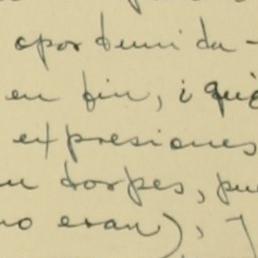 oportunida-
en fin, ¡qué
expresiones
torpes, pu
no eran),